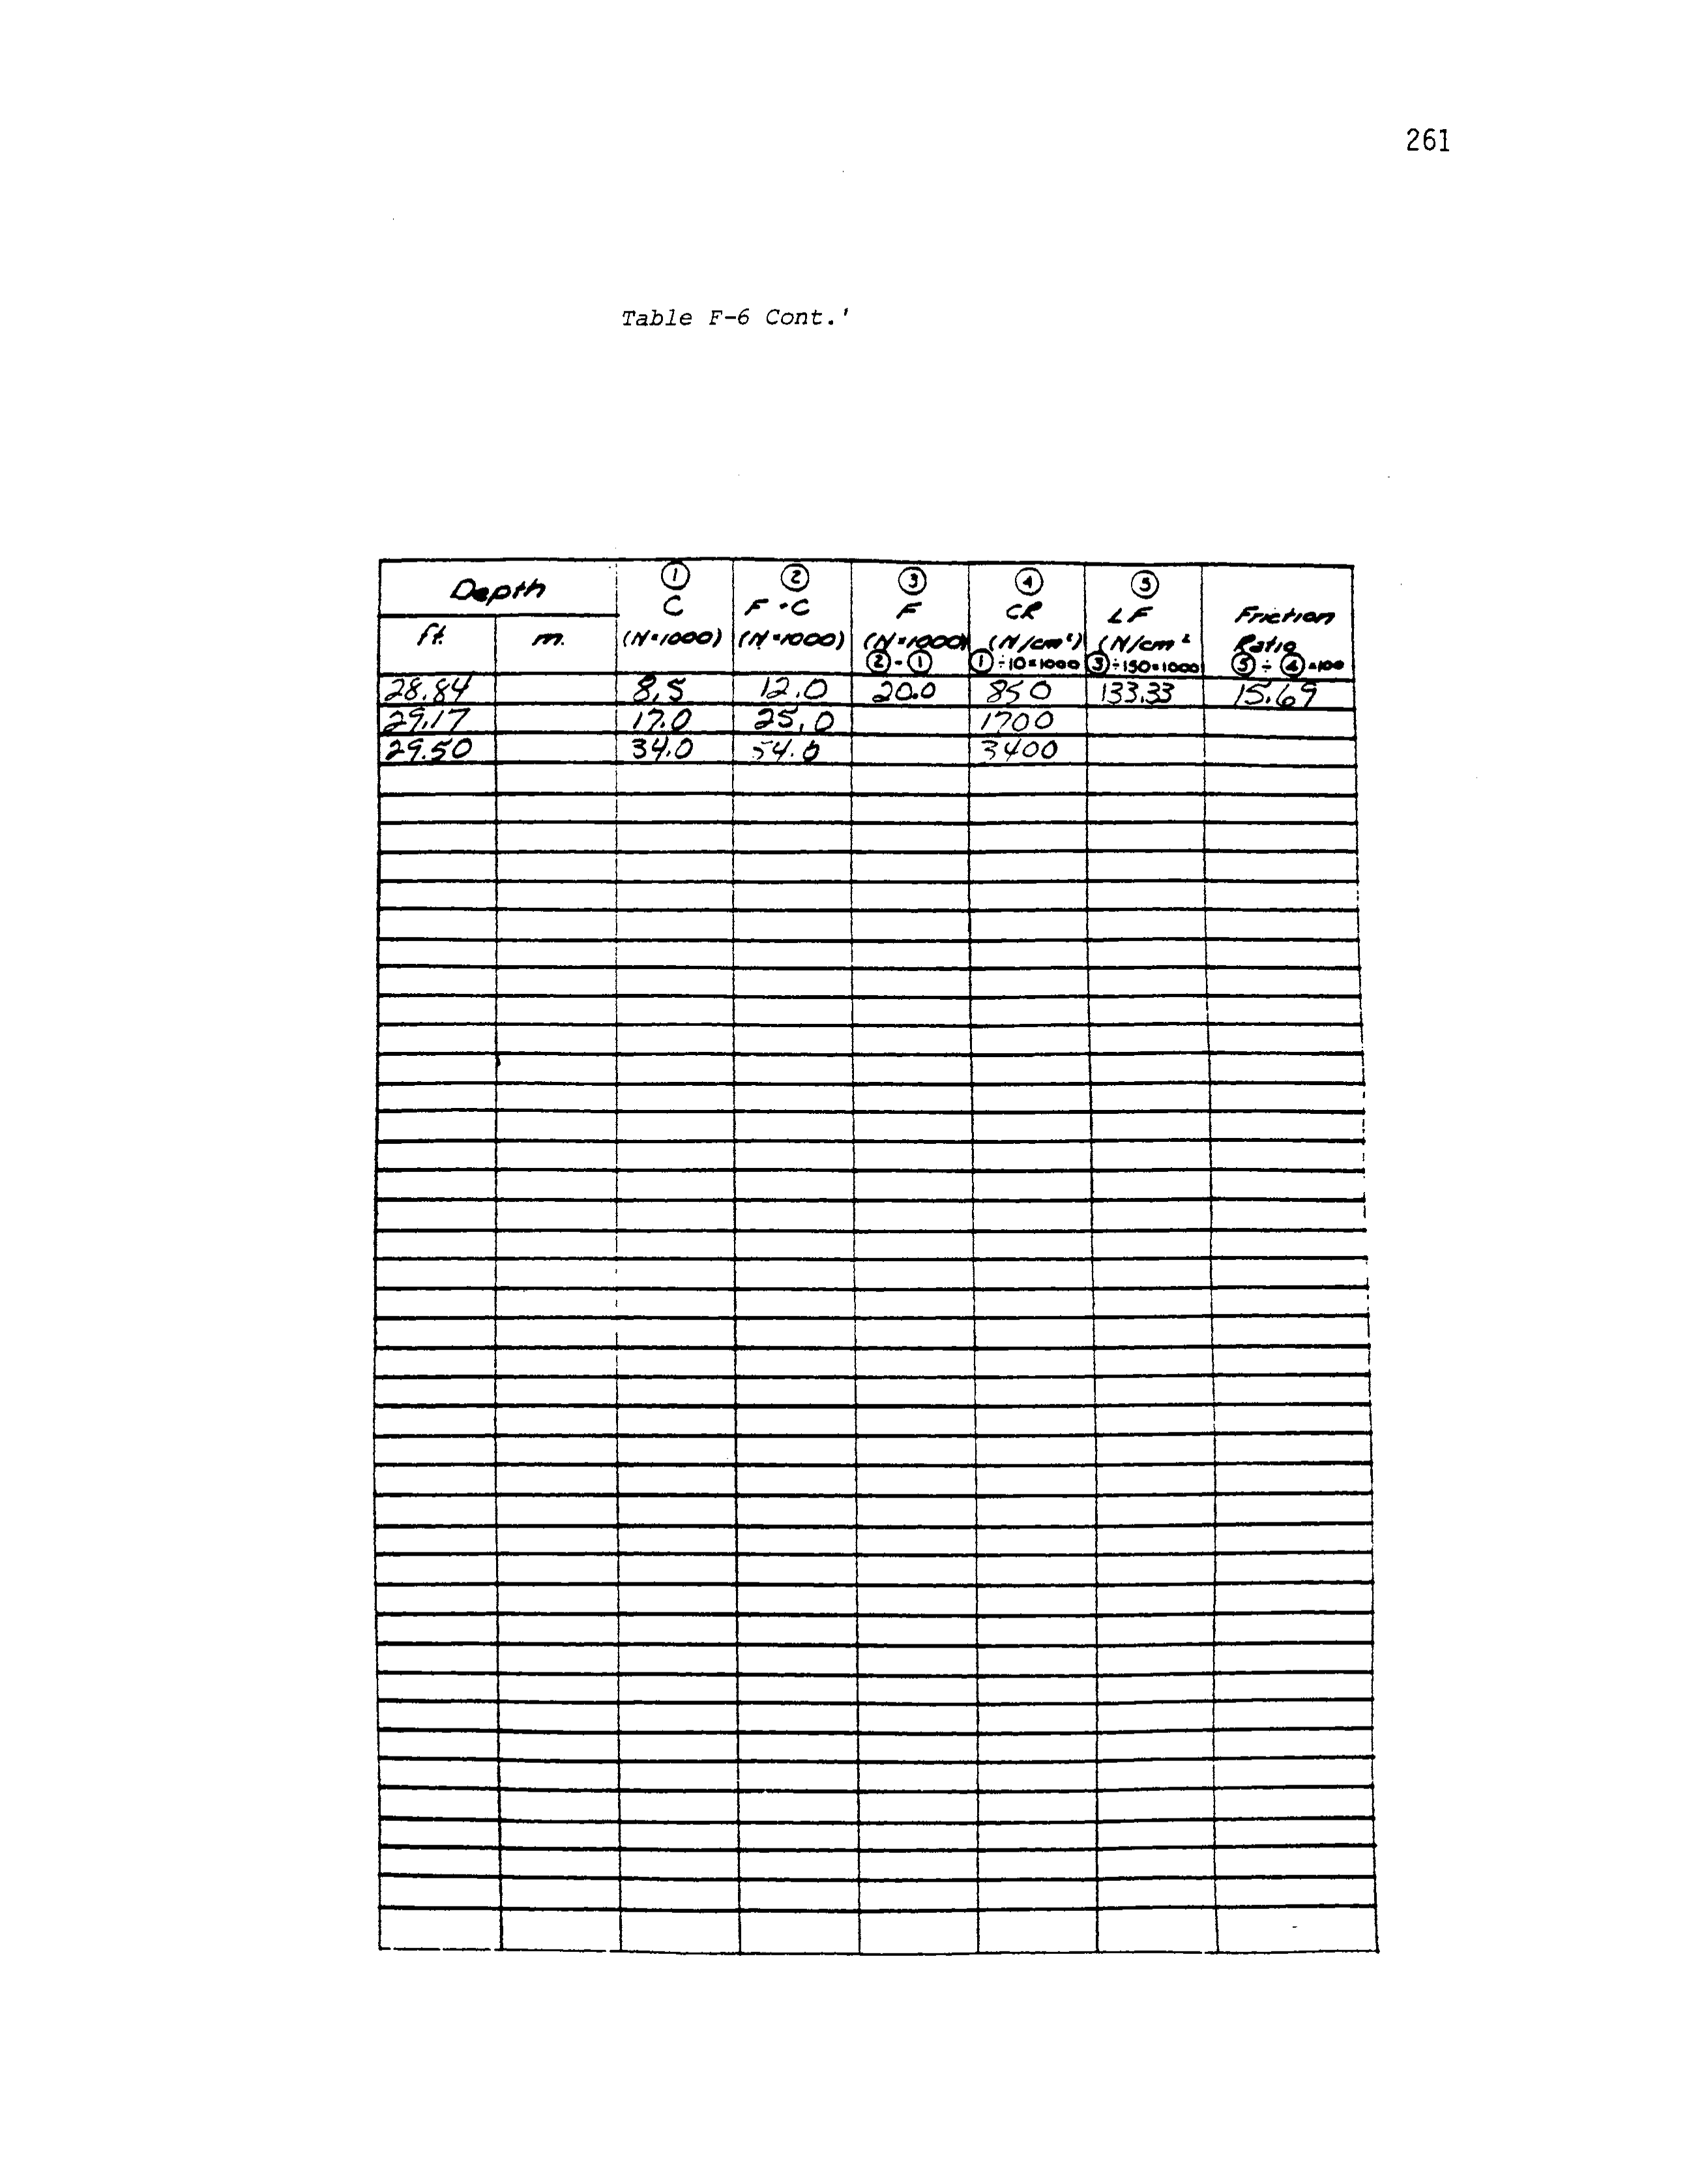 261
Table F-6 Cont.'
Depth ① ② ③ ④ ⑤
C F+C F CR LF Friction
ft. m. (N×1000) (N×1000) (N×1000) (N/cm²) (N/cm² Ratio
②-① ①÷10×1000 ③÷150×1000 ⑤÷④×100
28.84 8.5 12.0 20.0 850 133.33 15.69
29.17 17.0 25.0 1700
29.50 34.0 54.0 3400